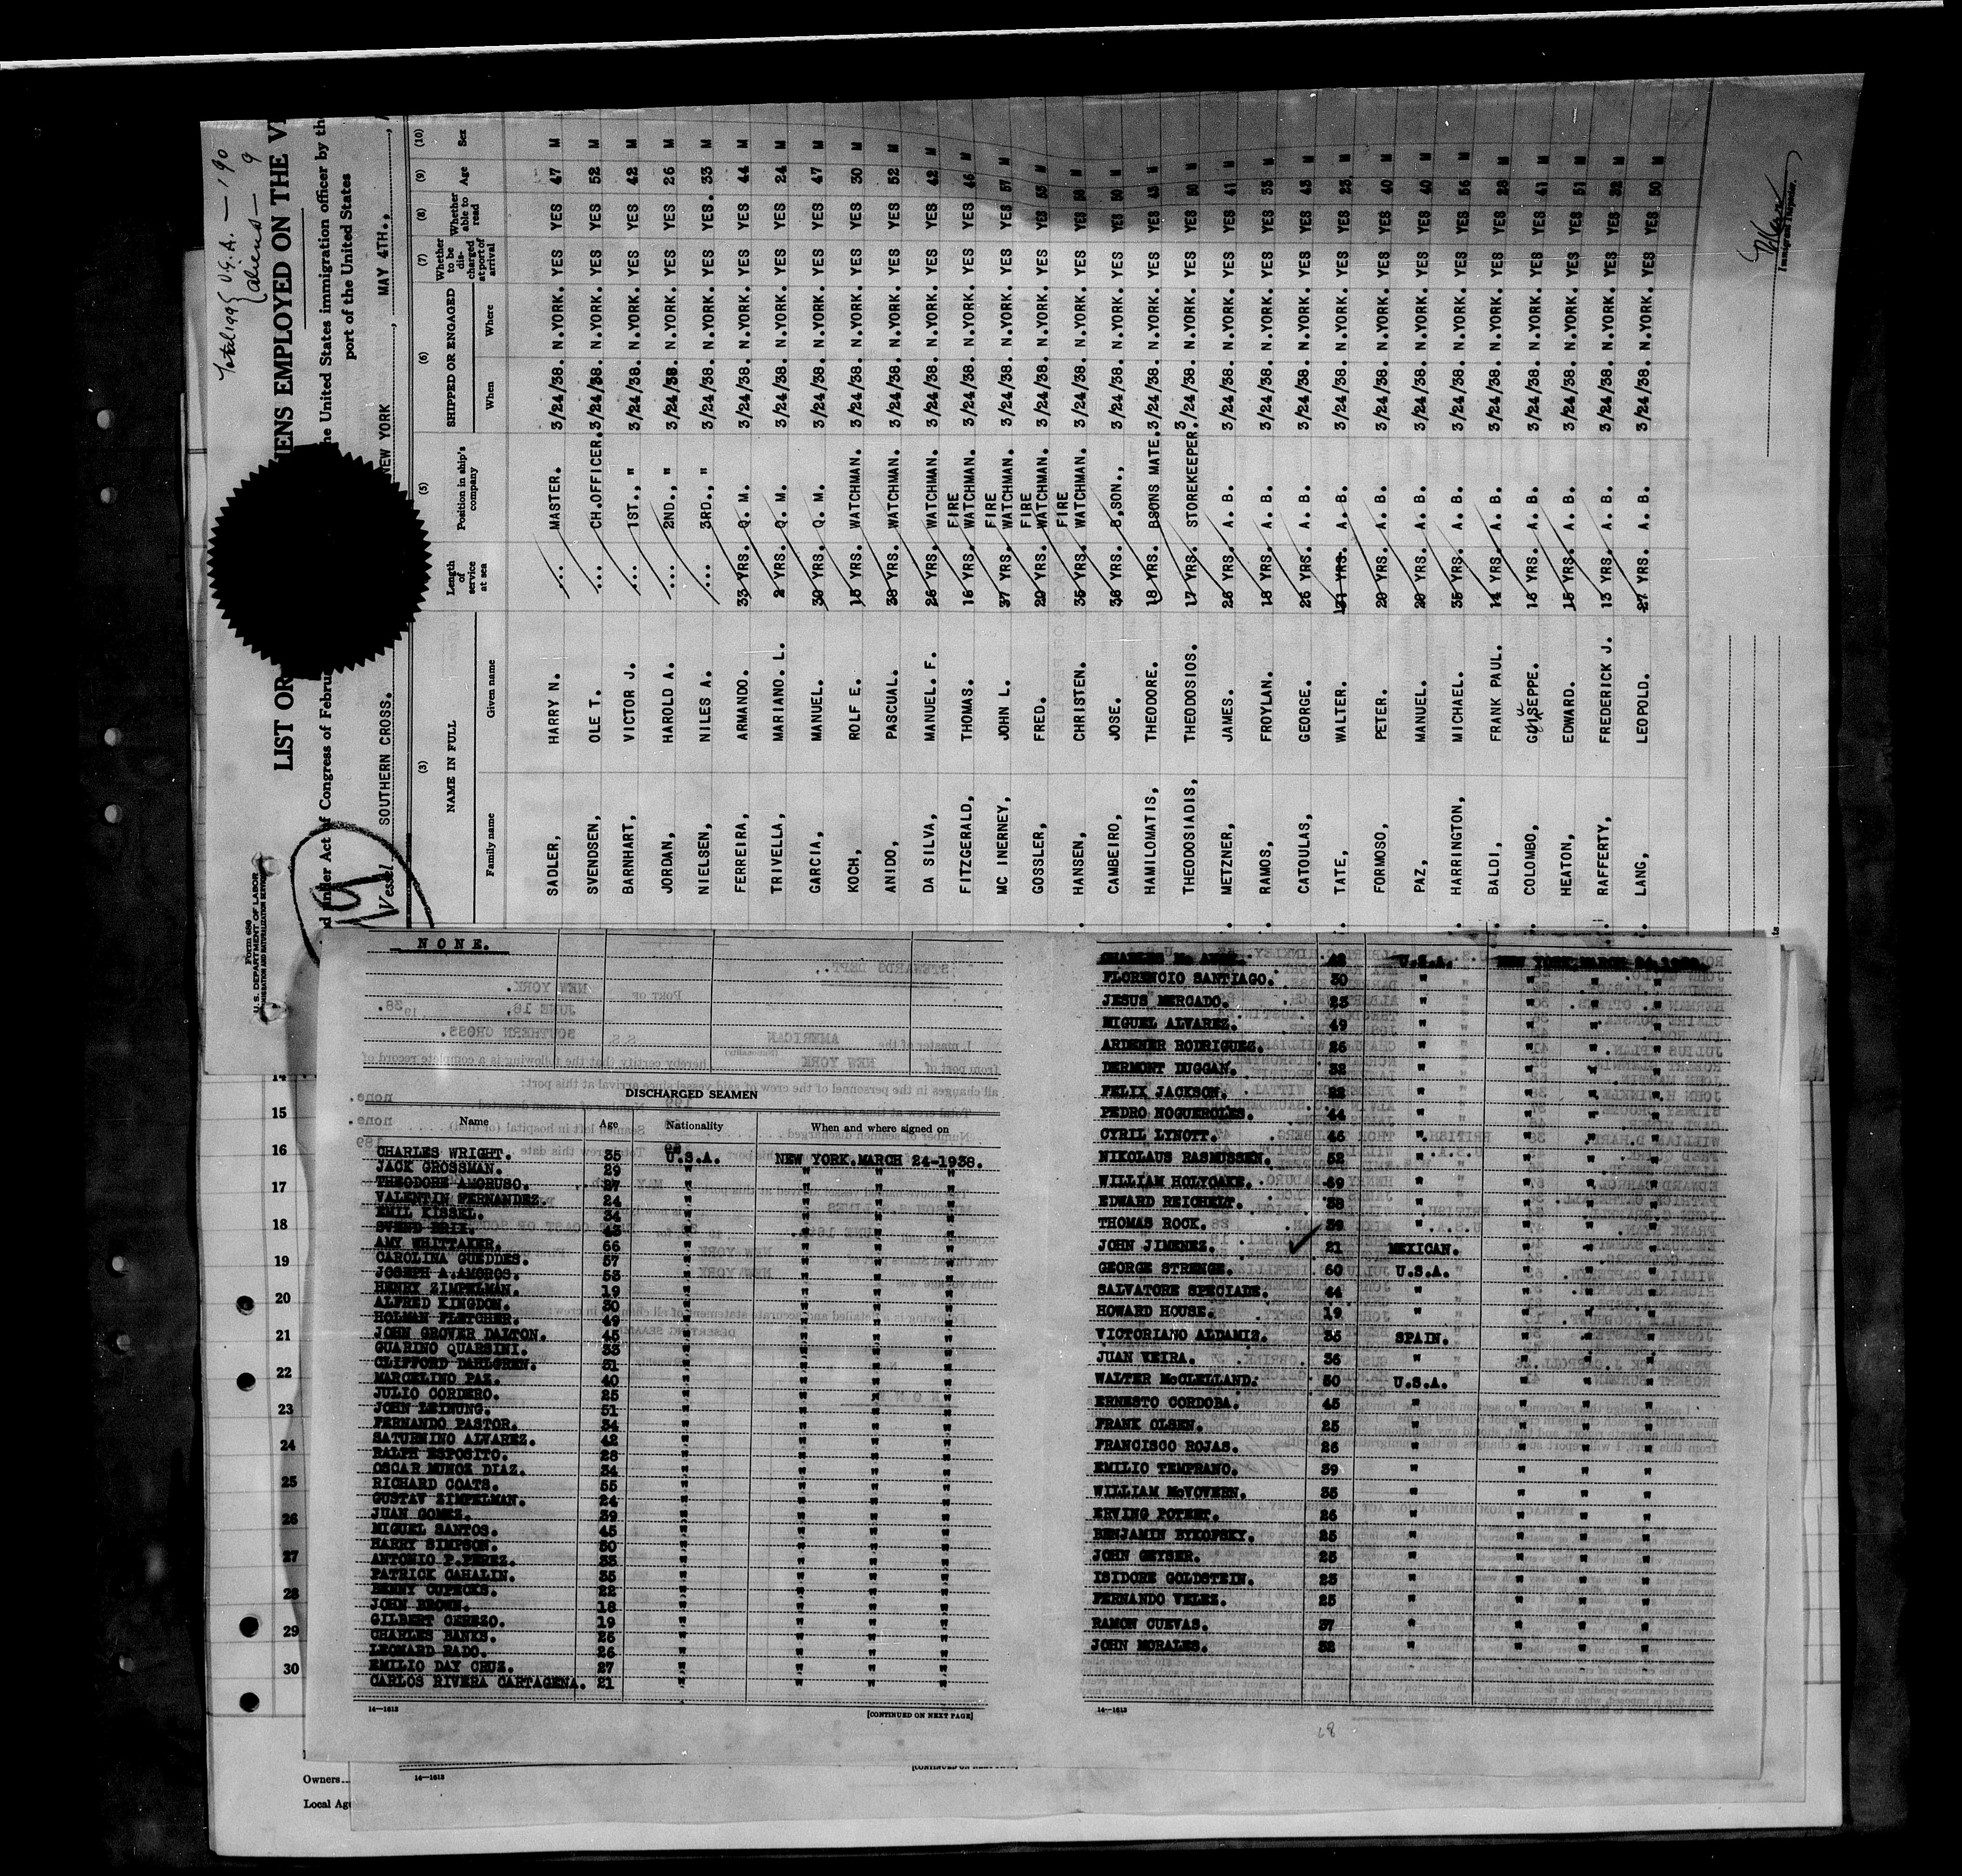 Total 199 { U.S.A. — 190
{ aliens — 9
Form 680
U. S. DEPARTMENT OF LABOR
LIST OR
ENS EMPLOYED ON THE
Act of Congress of
he United States immigration officer by
port of the United States
Vessel SOUTHERN CROSS.
NEW YORK , MAY 4TH.,
(3) (5) (6) (7) (8) (9) (10)
NAME IN FULL
Family name Given name
Length of service at sea
Position in ship's company
SHIPPED OR ENGAGED
When Where
Whether to be discharged at port of arrival
Whether able to read
Age
Sex
SADLER, HARRY N. ... MASTER. 3/24/38. N.YORK. YES YES 47 M
SVENDSEN, OLE T. ... CH.OFFICER. 3/24/38. N.YORK. YES YES 52 M
BARNHART, VICTOR J. ... 1ST.," 3/24/38. N.YORK. YES YES 42 M
JORDAN, HAROLD A. ... 2ND.," 3/24/38. N.YORK. YES YES 26 M
NIELSEN, NILES A. ... 3RD.," 3/24/38. N.YORK. YES YES. 33 M
FERREIRA, ARMANDO. 33 YRS. Q. M. 3/24/38. N.YORK. YES YES 44 M
TRIVELLA, MARIANO. L. 2 YRS. Q. M. 3/24/38. N.YORK. YES YES 24 M
GARCIA, MANUEL. 30 YRS. Q. M. 3/24/38. N.YORK. YES YES 47 M
KOCH, ROLF E. 15 YRS. WATCHMAN. 3/24/38. N.YORK. YES YES 30 M
ANIDO, PASCUAL. 38 YRS. WATCHMAN. 3/24/38. N.YORK. YES YES 52 M
DA SILVA, MANUEL. F. 26 YRS. WATCHMAN. 3/24/38. N.YORK. YES YES 42 M
FITZGERALD, THOMAS. 16 YRS. FIRE WATCHMAN. 3/24/38. N.YORK. YES YES 46 M
MC INERNEY, JOHN L. 37 YRS. FIRE WATCHMAN. 3/24/38. N.YORK. YES YES 57 M
GOSSLER, FRED. 29 YRS. FIRE WATCHMAN. 3/24/38. N.YORK. YES YES M
HANSEN, CHRISTEN. 35 YRS. FIRE WATCHMAN. 3/24/38. N.YORK. YES YES M
CAMBEIRO, JOSE. 36 YRS. B,SON., 3/24/38. N.YORK. YES YES 50 M
HAMILOMATIS, THEODORE. 18 YRS. BSONS MATE. 3/24/38. N.YORK. YES YES 43 M
THEODOSIADIS, THEODOSIOS. 17 YRS. STOREKEEPER. 3/24/38. N.YORK. YES YES 50 M
METZNER, JAMES. 26 YRS. A. B. 3/24/38. N.YORK. YES YES 41 M
RAMOS, FROYLAN. 18 YRS. A. B. 3/24/38. N.YORK. YES YES 33 M
CATOULAS, GEORGE. 26 YRS. A. B. 3/24/38. N.YORK. YES YES 43 M
TATE, WALTER. YRS. A. B. 3/24/38. N.YORK. YES YES 23 M
FORMOSO, PETER. 20 YRS. A. B. 3/24/38. N.YORK. YES YES 40 M
PAZ, MANUEL. 20 YRS. A. B. 3/24/38. N.YORK. YES YES 40 M
HARRINGTON, MICHAEL. 35 YRS. A. B. 3/24/38. N.YORK. YES YES 56 M
BALDI, FRANK PAUL. 14 YRS. A. B. 3/24/38. N.YORK. YES YES 28 M
COLOMBO, GIUSEPPE. YRS. A. B. 3/24/38. N.YORK. YES YES 41 M
HEATON, EDWARD. 15 YRS. A. B. 3/24/38. N.YORK. YES YES 51 M
RAFFERTY, FREDERICK J. 13 YRS. A. B. 3/24/38. N.YORK. YES YES 32 M
LANG, LEOPOLD. 27 YRS. A. B. 3/24/38. N.YORK. YES YES 50 M
Immigrant Inspector.
14
15
16
17
18
19
20
21
22
23
24
25
26
27
28
29
30
Owners
Local Age
N O N E.
DISCHARGED SEAMEN
Name Age Nationality When and where signed on
CHARLES WRIGHT. 35 U.S.A. NEW YORK.MARCH 24-1938.
JACK GROSSMAN. 29 " " " "
THEODORE AMORUSO. 27 " " " "
VALENTIN FERNANDEZ. 24 " " " "
EMIL KISSEL. 34 " " " "
SVEND BRIX. 43 " " " "
AMY WHITTAKER. 66 " " " "
CAROLINA GUEDDES. 57 " " " "
JOSEPH A.AMOROS. 53 " " " "
HENRY ZIMPELMAN. 19 " " " "
ALFRED KINGDON. 30 " " " "
HOLMAN FLETCHER. 49 " " " "
JOHN GROVER DALTON. 45 " " " "
GUARINO QUARSINI. 33 " " " "
CLIFFORD DAHLGREN. 31 " " " "
MARCELINO PAZ. 40 " " " "
JULIO CORDERO. 25 " " " "
JOHN LEINUNG. 51 " " " "
FERNANDO PASTOR. 34 " " " "
SATURNINO ALVAREZ. 42 " " " "
RALPH ESPOSITO. 28 " " " "
OSCAR MUNOZ DIAZ. 34 " " " "
RICHARD COATS. 55 " " " "
GUSTAV ZIMPELMAN. 24 " " " "
JUAN GOMEZ. 39 " " " "
MIGUEL SANTOS. 45 " " " "
HARRY SIMPSON. 50 " " " "
ANTONIO P.PEREZ. 35 " " " "
PATRICK CAHALIN. 35 " " " "
BENNY CUPECKS. 22 " " " "
JOHN BROWN. 18 " " " "
GILBERT CEREZO. 19 " " " "
CHARLES BANKS. 25 " " " "
LEONARD RADO. 26 " " " "
EMILIO DAY CRUZ. 27 " " " "
CARLOS RIVERA CARTAGENA. 21 " " " "
14—1613 [CONTINUED ON NEXT PAGE]
CHARLES U.S.A. NEW YORK.MARCH
FLORENCIO SANTIAGO. 30 " " " "
JESUS MERCADO. 23 " " " "
MIGUEL ALVAREZ. 49 " " " "
ARDENER RODRIGUEZ. 26 " " " "
DERMONT DUGGAN. 32 " " " "
FELIX JACKSON. 22 " " " "
PEDRO NOGUEROLES. 44 " " " "
CYRIL LYNOTT. 46 " " " "
NIKOLAUS RASMUSSEN. 52 " " " "
WILLIAM HOLYOAKE. 69 " " " "
EDWARD REICHELT. 38 " " " "
THOMAS ROCK. 39 " " " "
JOHN JIMENEZ. 21 MEXICAN. " " "
GEORGE STRENGE. 60 U.S.A. " " "
SALVATORE SPECIADE. 44 " " " "
HOWARD HOUSE. 19 " " " "
VICTORIANO ALDAMIZ. 35 SPAIN. " " "
JUAN VEIRA. 36 " " " "
WALTER McCLELLAND. 50 U.S.A. " " "
ERNESTO CORDOBA. 45 " " " "
FRANK OLSEN. 25 " " " "
FRANCISCO ROJAS. 26 " " " "
EMILIO TEMPRANO. 39 " " " "
WILLIAM McVOVERN. 35 " " " "
ERVING POTEET. 26 " " " "
BENJAMIN BYKOFSKY. 25 " " " "
JOHN GEYSER. 25 " " " "
ISIDORE GOLDSTEIN. 23 " " " "
FERNANDO VELEZ. 25 " " " "
RAMON CUEVAS. 37 " " " "
JOHN MORALES. 32 " " " "
14—1613
68
14—1613